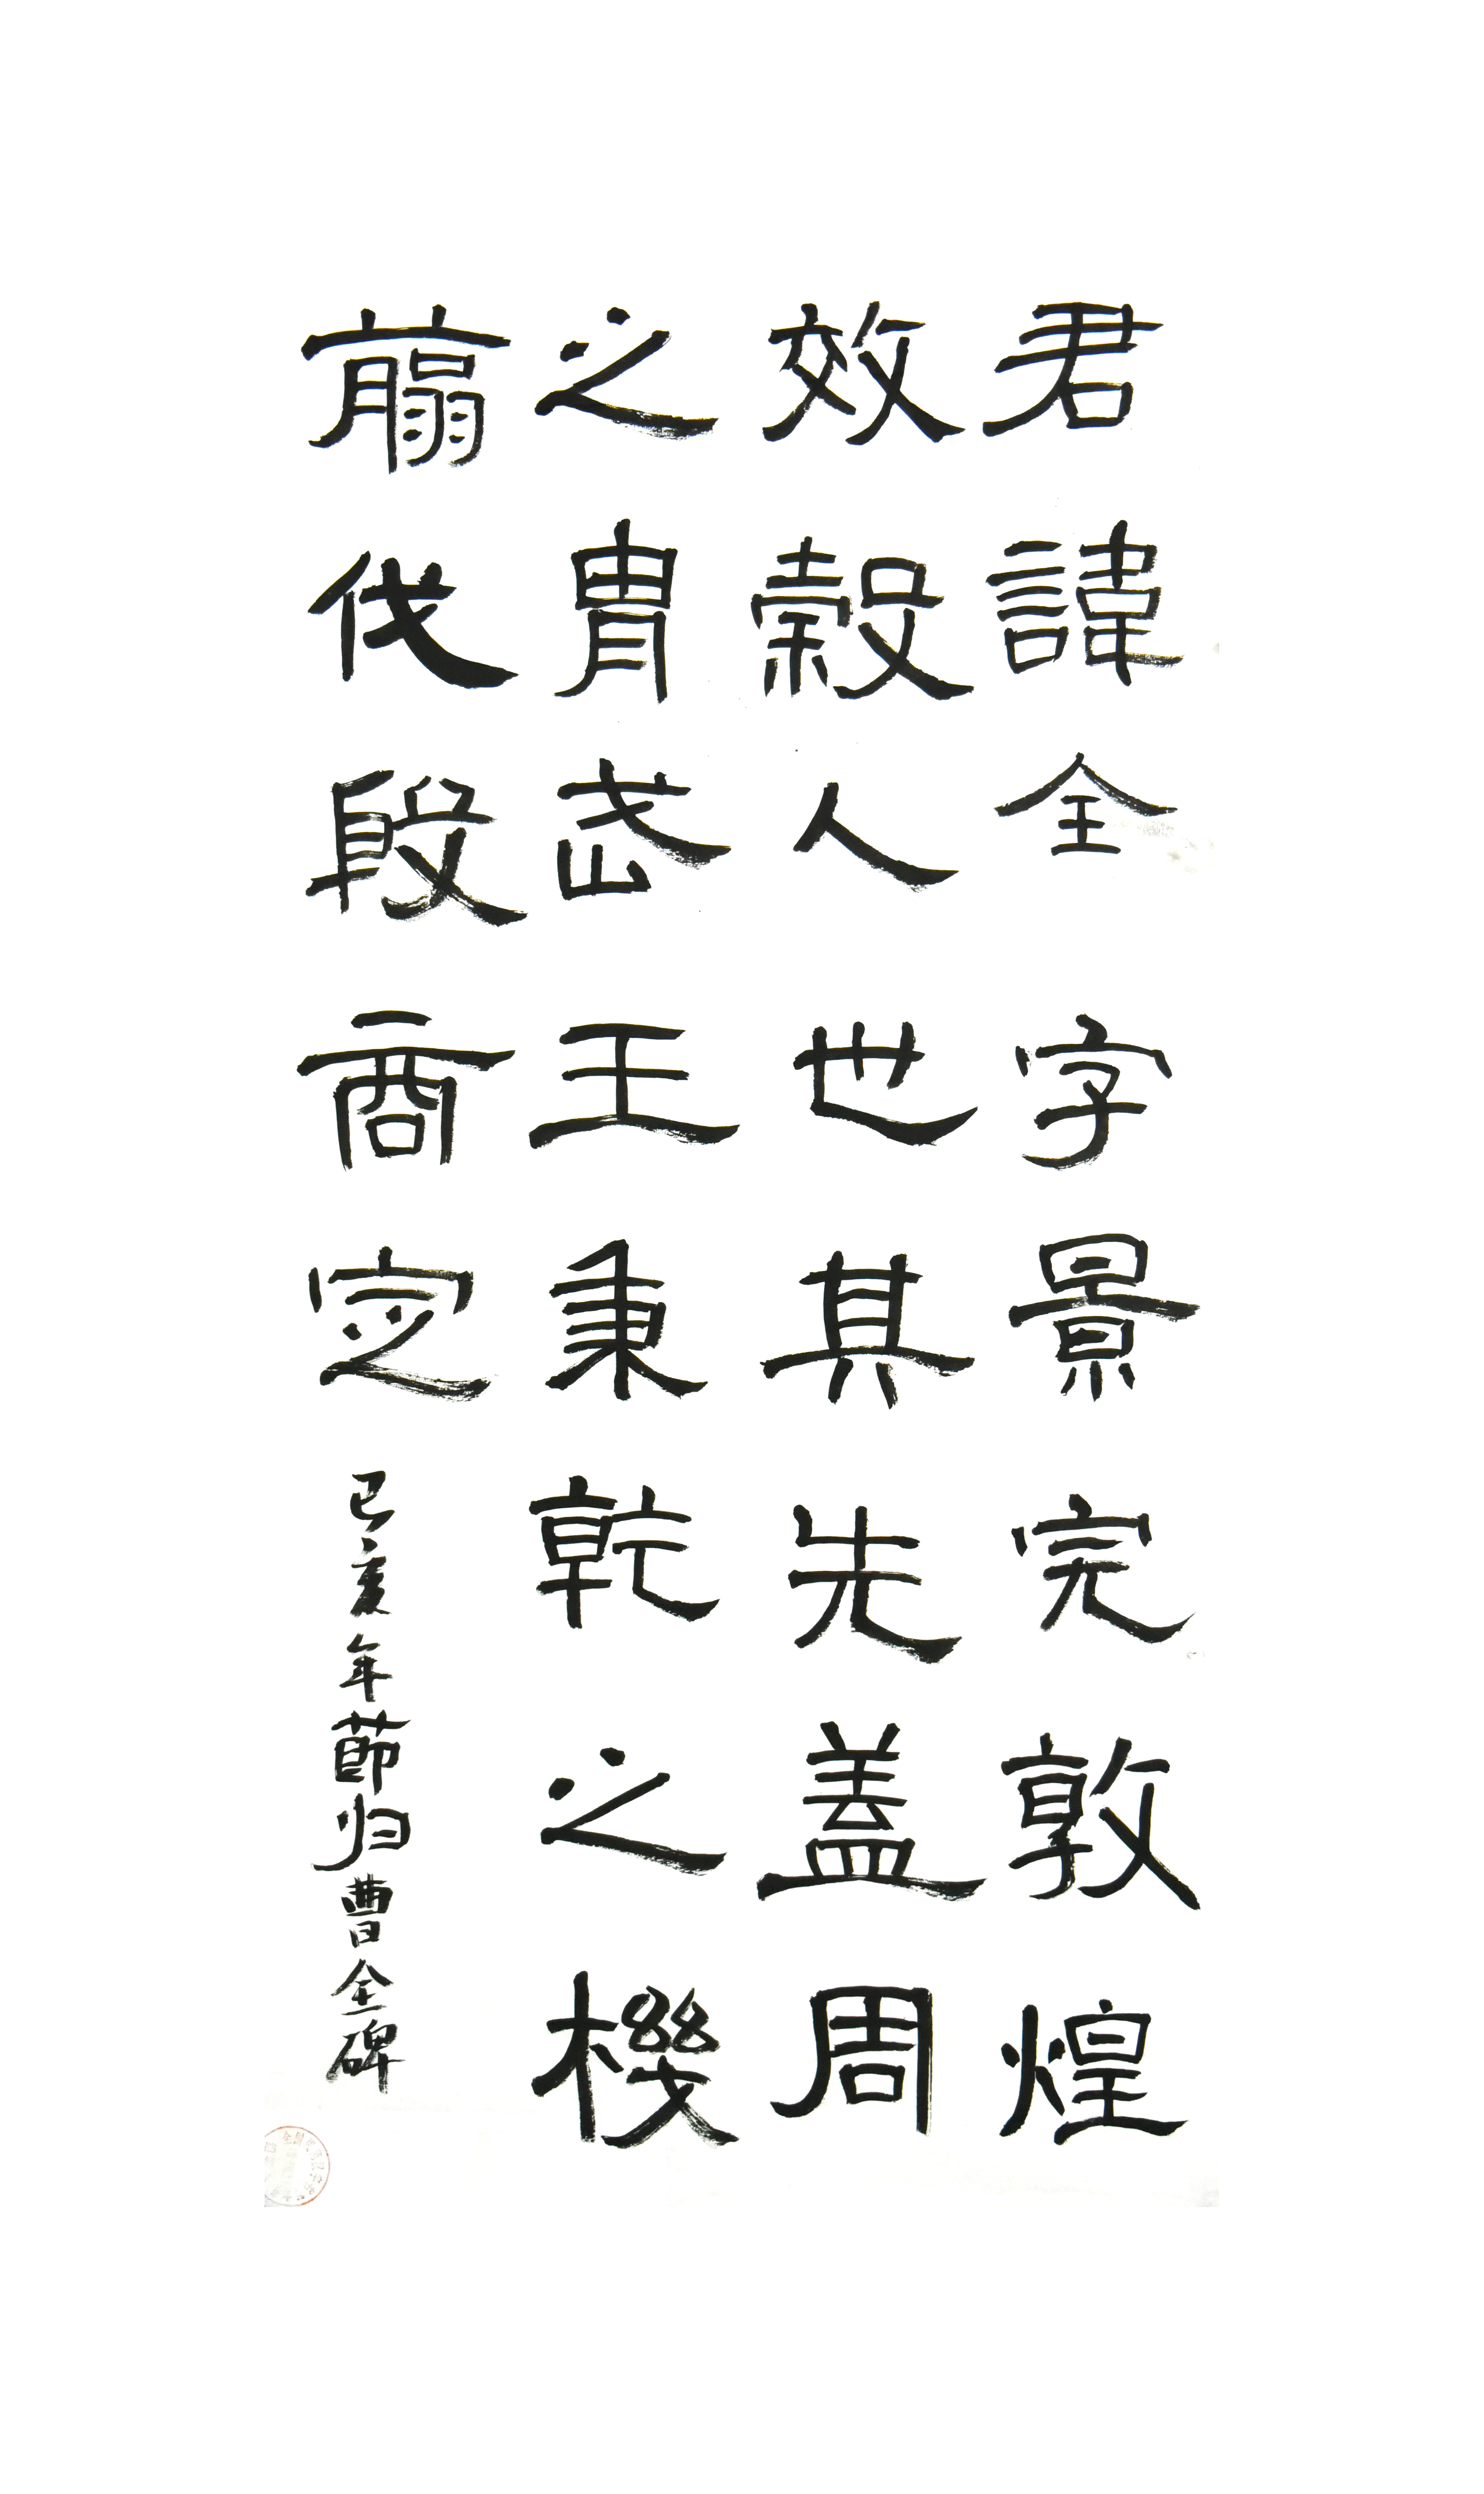 君諱全字景完敦煌
效穀人世其先蓋周
之胄武王秉乾之機
翦伐殷商定
己亥年節归曹全碑